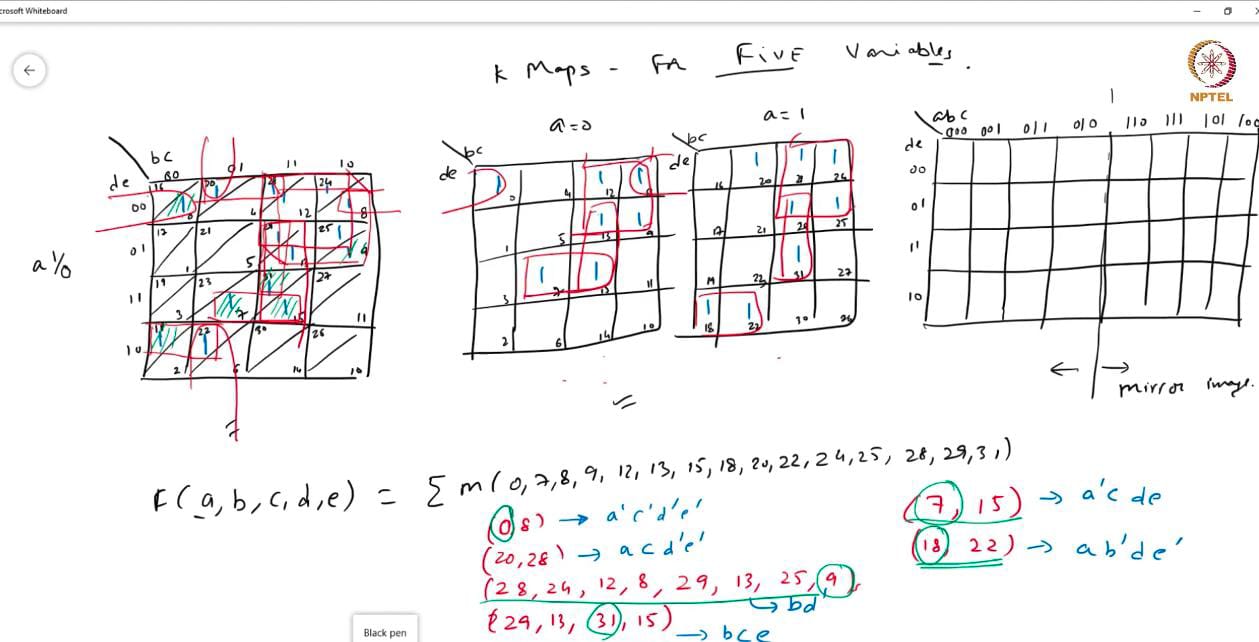 crosoft Whiteboard
K Maps - For Five Variables.
NPTEL
a=0
a=1
bc
de
00 01 11 10
00
01
11
10
a%
16 20 28 24
0 4 12 8
17 21 29 25
1 5 13 9
19 23 31 27
3 7 15 11
18 22 30 26
2 6 14 10
bc
de
1 1 1
0 4 12 8
1 1
1 5 13 9
1 1
3 7 15 11
2 6 14 10
bc
de
1 1 1
16 20 28 24
1 1
17 21 29 25
1
19 23 31 27
1 1
18 22 30 26
abc
000 001 011 010 110 111 101 100
de
00
01
11
10
← →
mirror image.
F(a,b,c,d,e) = Σ m(0,7,8,9, 12, 13, 15, 18, 20, 22, 24, 25, 28, 29, 31,)
(0 8) → a'c'd'e'
(20,28) → a c d'e'
(28, 24, 12, 8, 29, 13, 25, 9),
→ bd'
(29, 13, 31, 15) → bce
(7, 15) → a'c de
(18 22) → ab'de'
Black pen